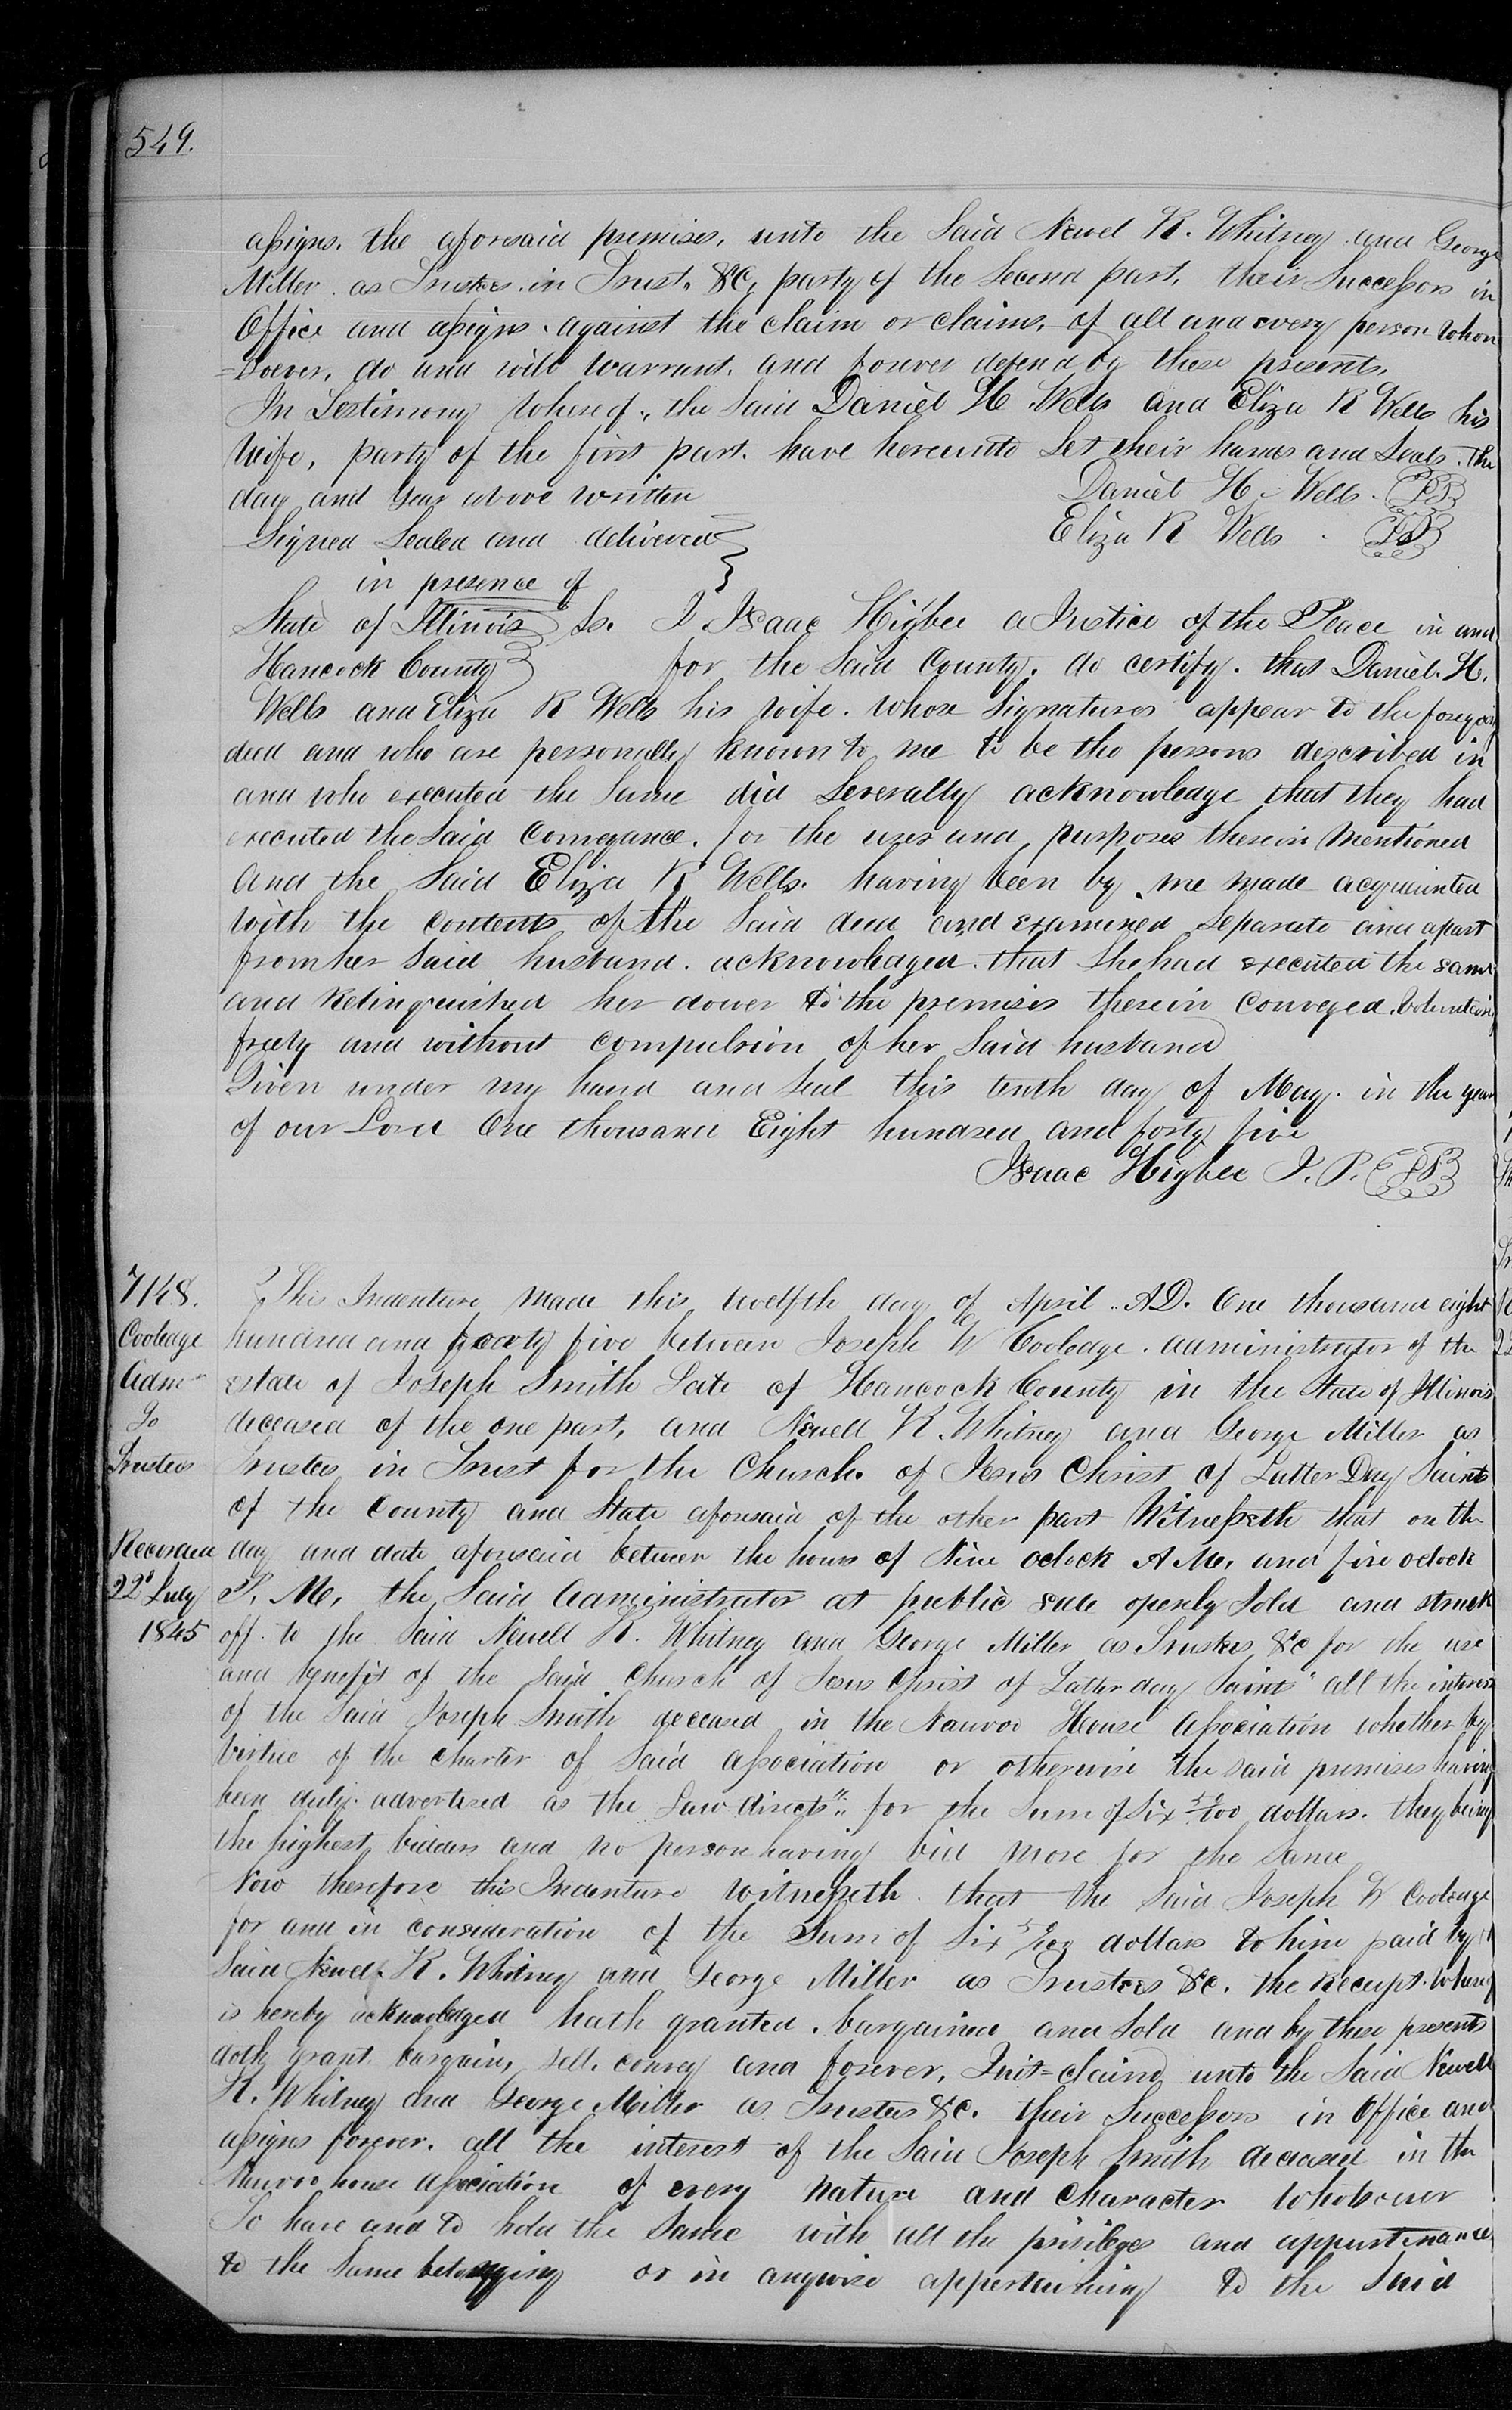 549.
assigns. the aforesaid premises, unto the Said Newel K. Whitney and George
Miller as Trustees in Trust, &C, party of the Second part, their Successors in
Office and assigns against the claim or claims, of all and every person whom
=soever, do and will warrant and forever defend by these presents,
In Testimony Whereof, the Said Daniel H Wells and Eliza R Wells his
Wife, party of the first part. have hereunto Set their hands and Seals. The
day and year above written Daniel H. Wells.
Signed Sealed and delivered Eliza R Wells
in presence of
State of Illinois Ss. I Isaac Higbee a Justice of the Peace in and
Hancock County for the Said County, do certify. that Daniel. H.
Wells and Eliza R Wells his Wife. Whose Signatures appear to the foregoing
deed and who are personally known to me to be the persons described in
and who executed the Same did Severally acknowledge that they had
executed the Said Conveyance, for the uses and purposes therein Mentioned
And the Said Eliza R Wells. having been by me made acquainted
with the contents of the Said deed and examined Separate and apart
from her Said husband. acknowledged. that She had executed the same
and Relinquished her dower to the premises therein Conveyed. Voluntarily
freely and without compulsion of her Said husband
Given under my hand and Seal this tenth day of May. in the year
of our Lord One thousand Eight hundred and forty five
Isaac Higbee J. P.
7148. This Indenture Made this twelfth day of April .. AD. One thousand eight
Cooledge hundred and forty five between Joseph W Cooledge. administrator of the
Adm estate of Joseph Smith Late of Hancock County in the State of Illinois
To deceased of the one part, and Newell K. Whitney and George Miller as
Trustees Trustees in Trust for the Church. of Jesus Christ of Latter Day Saints
of the County and State aforesaid of the other part Witnesseth that on the
Recorded day and date aforesaid between the hours of Nine oclock A M, and five oclock
22d July P. M, the Said Administrator at public sale openly Sold and struck
1845 off to the Said Newell K. Whitney and George Miller as Trustees &c for the use
and benefit of the Said Church of Jesus Christ of Latter day Saints" all the interest
of the Said Joseph Smith deceased in the Nauvoo House Association whether by
Virtue of the Charter of Said Association or otherwise the said premises having
been duly advertised as the Law directs". for the Sum of Six 50/100 dollars. they being
the highest bidders and no person having bid more for the Same
Now therefore this Indenture Witnesseth. that the Said Joseph W Cooledge
for and in consideration of the Sum of Six 50/100 dollars to him paid by
Said Newel K. Whitney and George Miller as Trustees &c. the Receipt Whereof
is hereby acknowledged hath granted. bargained and Sold and by these presents
doth grant bargain, sell. convey and forever, Quit=claim unto the Said Newell
K. Whitney and George Miller as Trustees &c. their Successors in Office and
assigns forever. all the interest of the Said Joseph Smith deceased in the
Nauvoo house Association of every nature and Character Whatsoever
To have and to hold the Same with all the privileges and appurtenance
to the Same belonging or in anywise appertaining to the Said